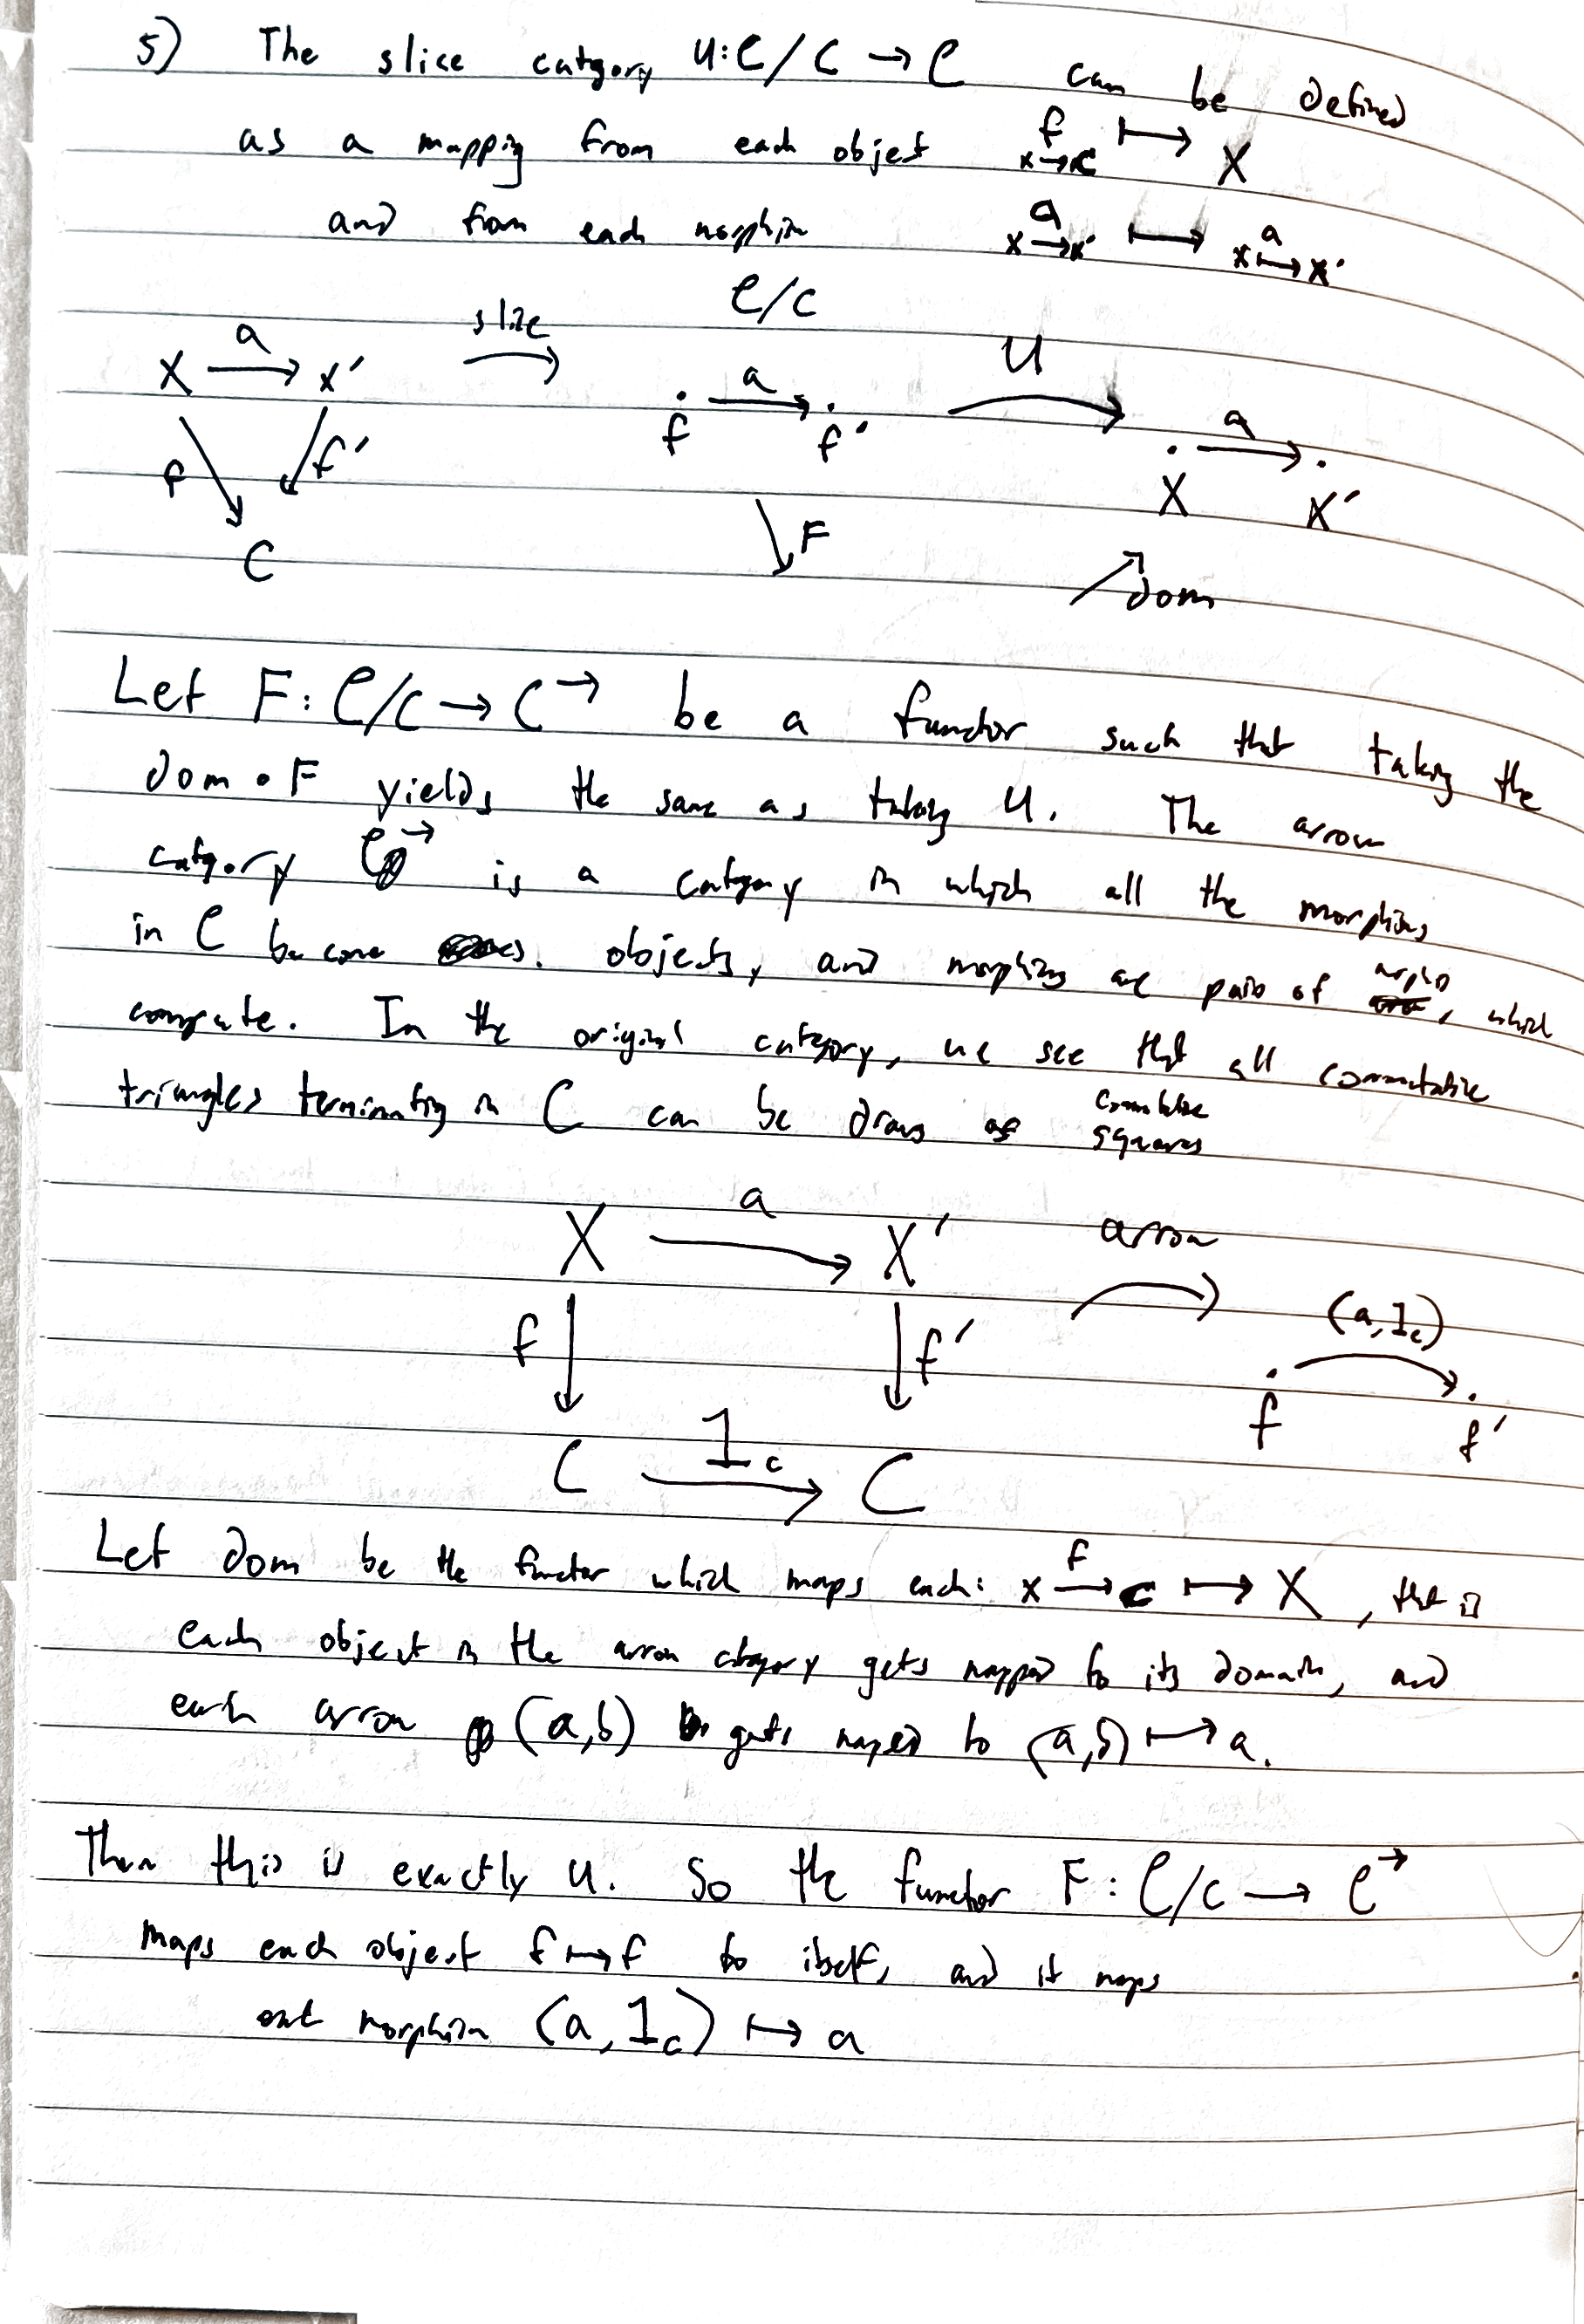 5) The slice catgory U: C/C → C can be defined
as a mapping from each object f x→C ↦ X
and from each morphism x a→ x' ↦ x a→ x'
C/C
X a→ x' slice → f a→ f' U → X a→ X'
f f' C
F dom
Let F: C/C → C→ be a functor such that taking the
dom ∘ F yields the same as taking U. The arrow
category C→ is a category in which all the morphisms
in C become objects, and morphisms are pairs of morphism, which
commute. In the original category, we see that all commutative
triangles terminating in C can be drawn as commutative squares
X a→ X' arrow
f f' (a, 1c)
f f'
C 1c→ C
Let dom be the functor which maps each: x f→ C ↦ X, that is
each object in the arrow category gets mapped to its domain, and
each arrow (a,b) gets mapped to (a,b) ↦ a.
Then this is exactly U. So the functor F: C/C → C→
maps each object f ↦ f to itself, and it maps
each morphism (a, 1c) ↦ a